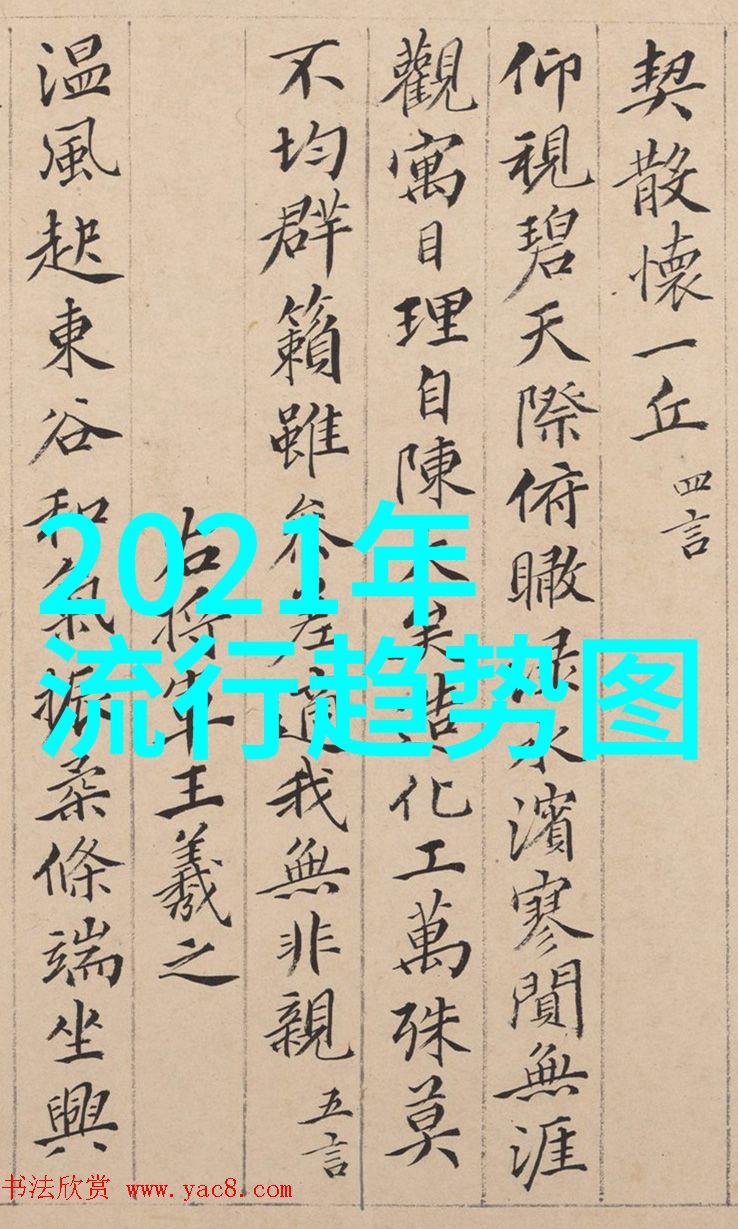 契散懷一丘 四言
仰視碧天際俯瞰淥水濱寥閴無涯
觀寓目理自陳大矣造化工萬殊莫
不均群籟雖參差適我無非親 五言
右將軍王羲之
温風起東谷和氣振柔條端坐興
2021年
流行趋势图
书法欣赏 www.yac8.com